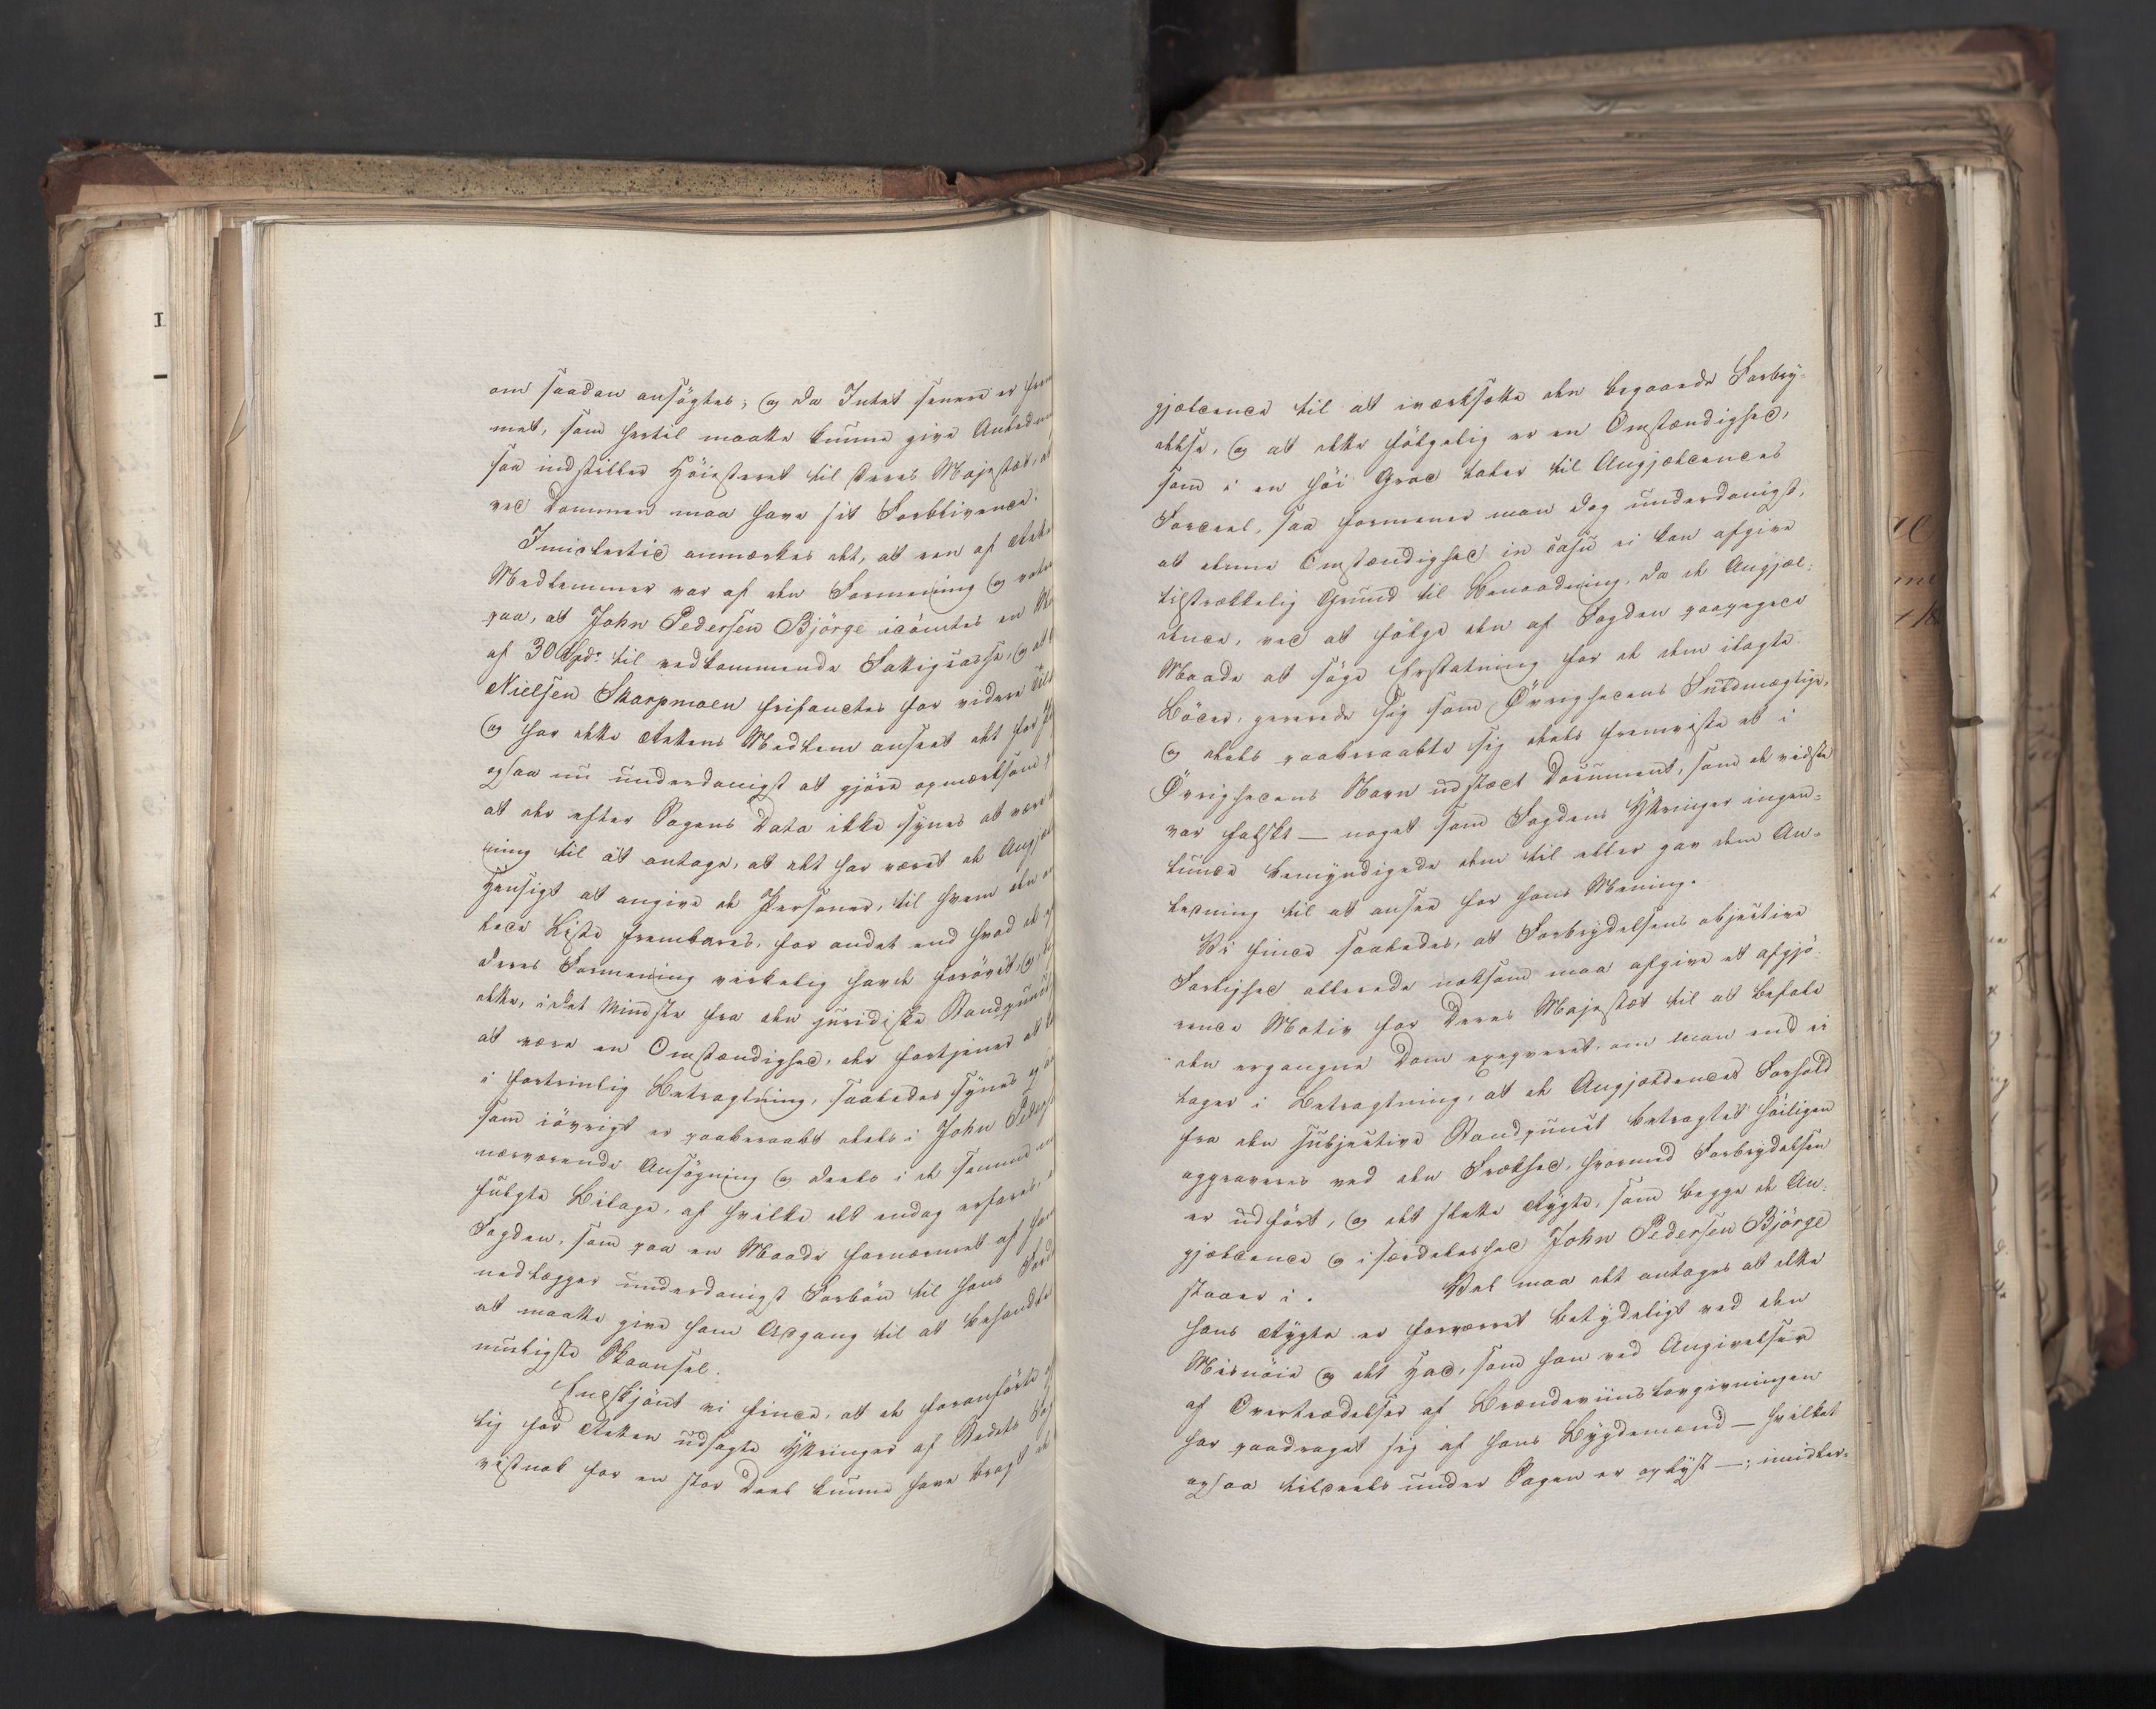 om saadan ansögtes; og da Intet senere er frem
met, som hertil maatte kunne give Anledn
saa indstiller Höiesteret til Deres Majestæt, at
ved Dommen maa have sit Forblivende.
Imidlertid anmærkes det, at een af Rette
Medlemmer var af den Formening og vote
paa, at John Pedersen Björge idömtes en
af 30 Spd: til vedkommende Fattigcasse, og at
Nielsen Skarpmoen frifandtes for videre Tilt
og har dette Rettens Medlem anseet det for
ogsaa nu underdanigst at gjöre opmærksom
at der efter Sagens Data ikke synes at være
ning til at antage, at det har været de Angjæl
Hensigt at angive de Personer, til hvem den
ted Liste frembares, for andet end hvad de
deres Formening virkelig havde forövet, og
dette, i det Mindste fra den juridiske Standpunct
at være en Omstændighed, der fortjener at
i fortrinlig Betragtning, saaledes synes og
som iövrigt er paaberaabt deels i John Peders
nærværende Ansögning og deels i de samme
fulgte Bilage, af hvilke det endog erfares,
Fogden, som paa en Maade fornærmet af ham
nedlægger underdanigst Forbön til hans
at maatte give ham Adgang til at behandle
muligste Skaansel.
Endskjönt vi finde, at de foranförte
lig for Retten udsagte Yttringer af Stedets Fog
vistnok for en stor Deel kunne have bragt de
gjældende til at iværksætte den begaaede Forbry-
delse, og at dette fölgelig er en Omstændighed,
som i en höi Grad taler til Angjældendes
Fordeel, saa formener man dog underdanigst,
at denne Omstændighed in casu ei kan afgive
tilstrækkelig Grund til Benaadning, da de Angjæl-
dende, ved at fölge den af Fogden paapegede
Maade at söge Erstatning for de dem ilagte
Böder, gererede sig som Övrighedens Fuldmægtige,
og deels paaberaabte sig deels fremviste et i
Övrighedens Navn udstædt Document, som de vidste
var falskt — noget som Fogdens Yttringer ingen-
lunde bemyndigede dem til eller gav dem An-
ledning til at ansee for hans Mening.
Vi finde saaledes, at Forbrydelsens objective
Farlighed allerede noksom maa afgive et afgjö-
rende Motiv for Deres Majestæt til at befale
den ergangne Dom exeqveret, om man end ei
tager i Betragtning, at de Angjældendes Forhold
fra den subjective Standpunct betragtet höiligen
aggraveres ved den Frækhed, hvormed Forbrydelsen
er udfört, og det slette Rygte, som begge de An-
gjældende og isærdeleshed John Pedersen Björge
staaer i. Vel maa det antages at dette
hans Rygte er forværret betydeligt ved den
Misnöie og det Had, som han ved Angivelser
af Overtrædelser af Brændeviinslovgivningen
har paadraget sig af hans Bygdemænd — hvilket
ogsaa tildeels under Sagen er oplyst —; imidler-